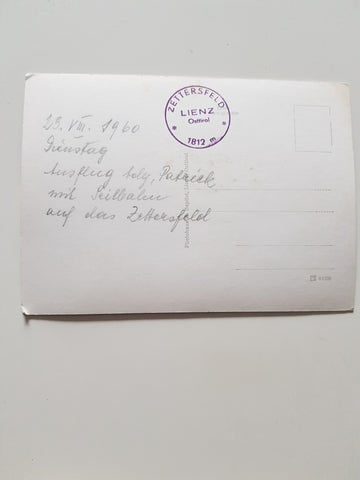 ZETTERSFELD
LIENZ
Osttirol
* 1812 m *
23. VIII. 1960
Dienstag
Ausflug Patrick
mit Seilbahn
auf das Zettersfeld